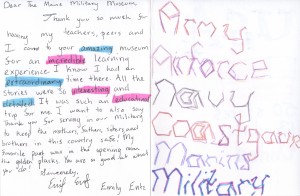 Dear The Maine Military Museum,
Thank you so much for
having my teachers, peers and
I come to your amazing museum
for an incredible learning
experience. I know I had an
extraordinary time there. All the
stories were so interesting and
detailed. It was such an educational
trip for me. I want to also say
thank you for serving in our military
to keep the mothers, fathers, sisters, and
brothers in this country safe! My
favorite part was in the opening room
the golden plaques. You are so good at what
you do!
Sincerely,
Emily Entz
Army
Airforce
Navy
Coastguard
Marines
Military